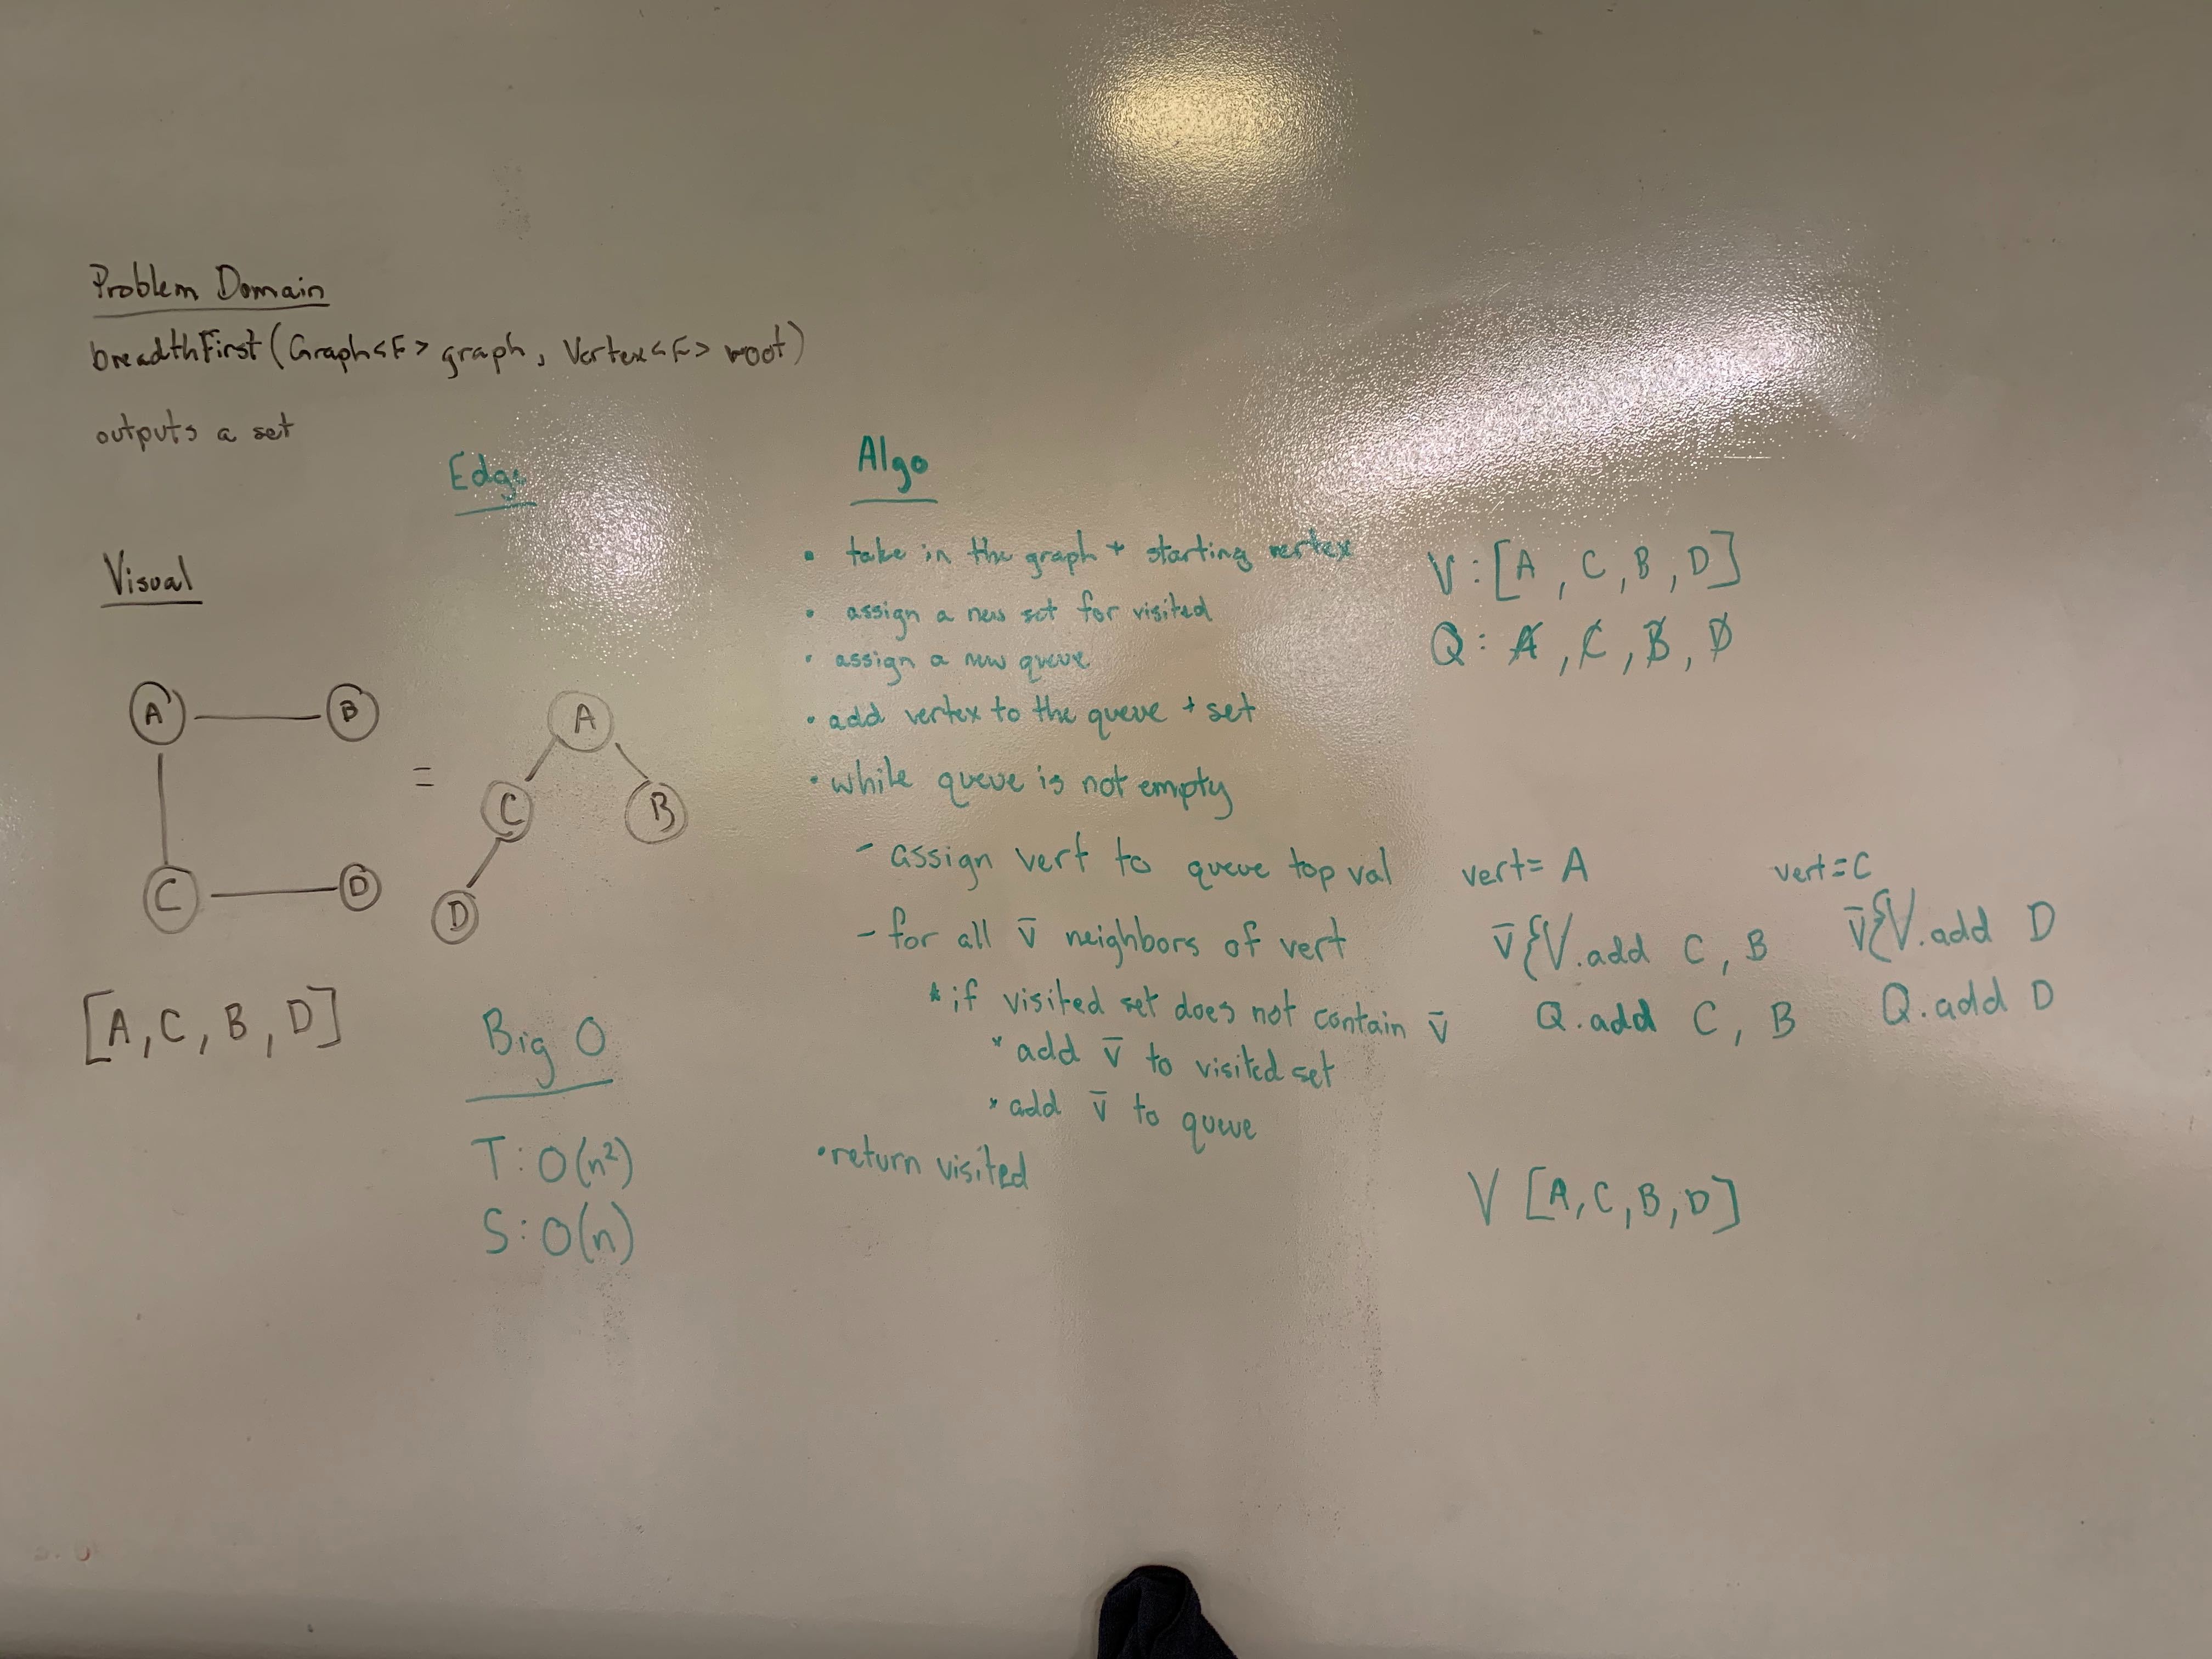 Problem Domain
breadthFirst(Graph<E> graph, Vertex<E> root)
outputs a set
Edge
Visual
A B
C D
=
A
C B
D
[A, C, B, D]
Big O
T: O(n²)
S: O(n)
Algo
• take in the graph + starting vertex
• assign a new set for visited
• assign a new queue
• add vertex to the queue + set
• while queue is not empty
- assign vert to queue top val
- for all v̄ neighbors of vert
* if visited set does not contain v̄
* add v̄ to visited set
* add v̄ to queue
• return visited
V: [A, C, B, D]
Q: A, C, B, D
vert = A
v̄{V.add C, B
Q.add C, B
vert = C
v̄{V.add D
Q.add D
V [A, C, B, D]